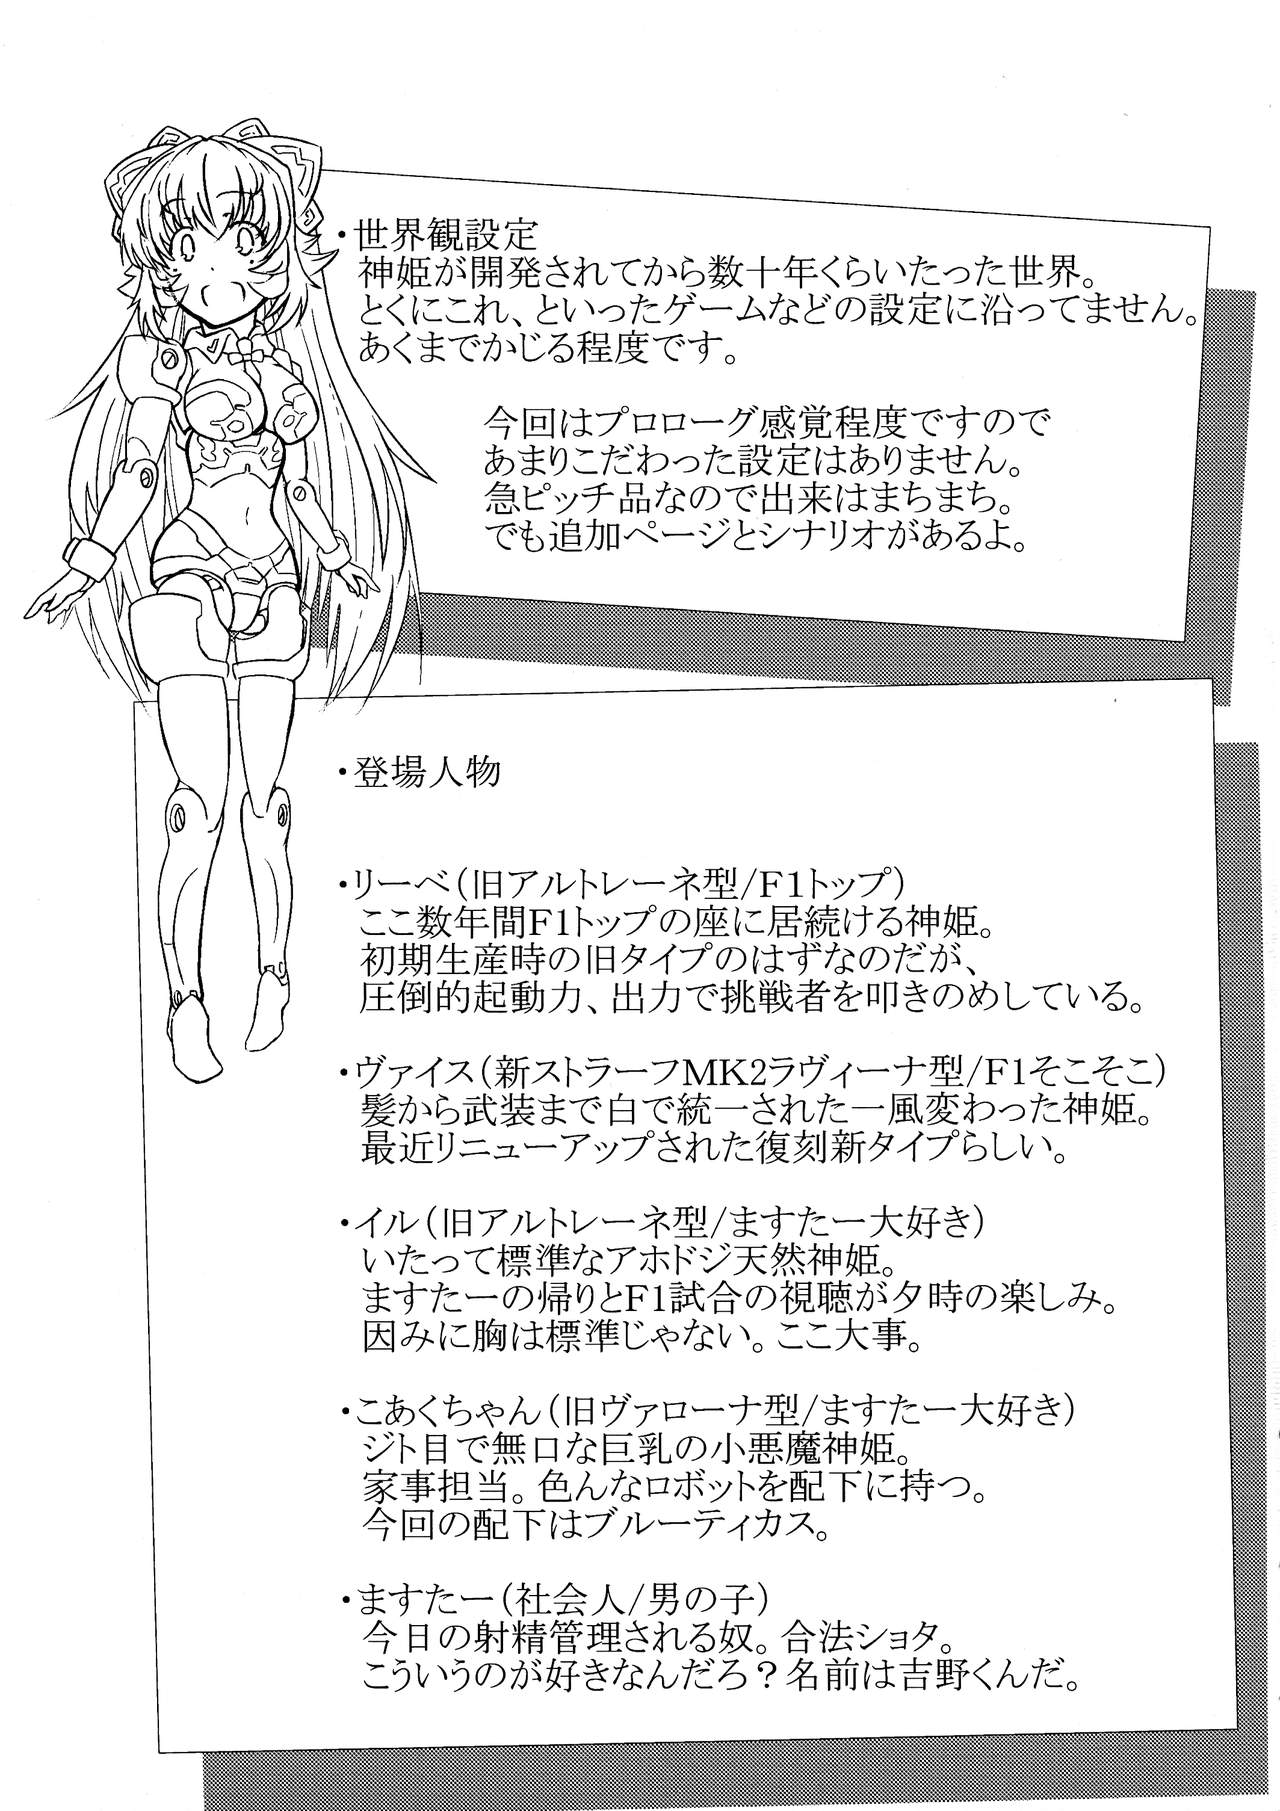 ・世界観設定
神姫が開発されてから数十年くらいたった世界。
とくにこれ、といったゲームなどの設定に沿ってません。
あくまでかじる程度です。
今回はプロローグ感覚程度ですので
あまりこだわった設定はありません。
急ピッチ品なので出来はまちまち。
でも追加ページとシナリオがあるよ。
・登場人物
・リーベ（旧アルトレーネ型/F1トップ）
ここ数年間F1トップの座に居続ける神姫。
初期生産時の旧タイプのはずなのだが、
圧倒的起動力、出力で挑戦者を叩きのめしている。
・ヴァイス（新ストラーフMK2ラヴィーナ型/F1そこそこ）
髪から武装まで白で統一された一風変わった神姫。
最近リニューアップされた復刻新タイプらしい。
・イル（旧アルトレーネ型/ますたー大好き）
いたって標準なアホドジ天然神姫。
ますたーの帰りとF1試合の視聴が夕時の楽しみ。
因みに胸は標準じゃない。ここ大事。
・こあくちゃん（旧ヴァローナ型/ますたー大好き）
ジト目で無口な巨乳の小悪魔神姫。
家事担当。色んなロボットを配下に持つ。
今回の配下はブルーティカス。
・ますたー（社会人/男の子）
今日の射精管理される奴。合法ショタ。
こういうのが好きなんだろ？名前は吉野くんだ。